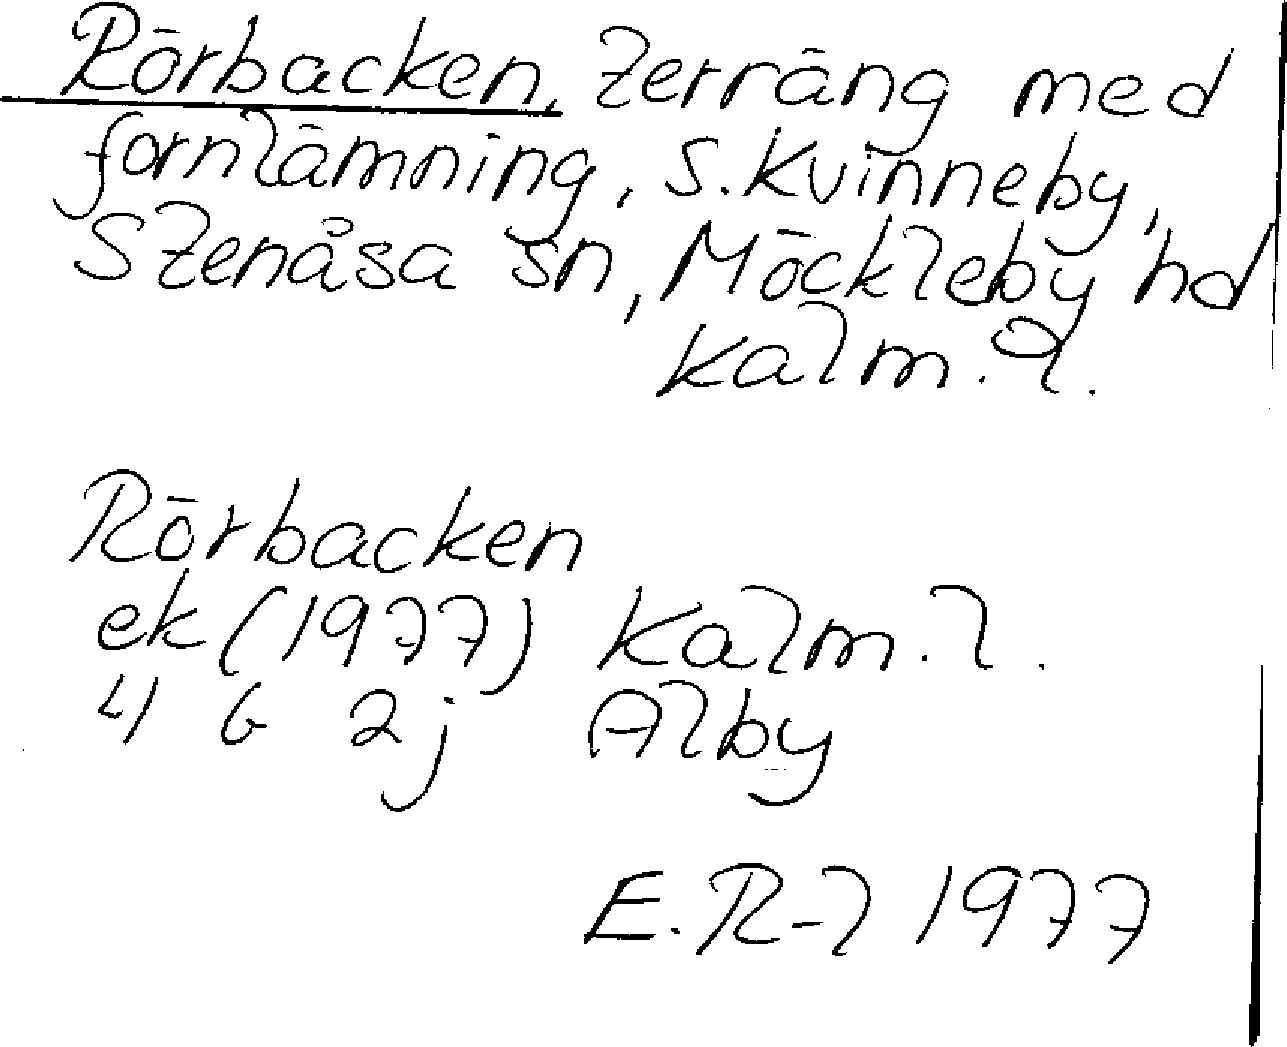 Rörbacken, terräng med
fornlämning, S. Kvinneby,
Stenåsa sn, Möckleby hd
Kalm. l.
Rörbacken
ek (1977) Kalm. l.
4 G 2j Alby
E. R-l 1977